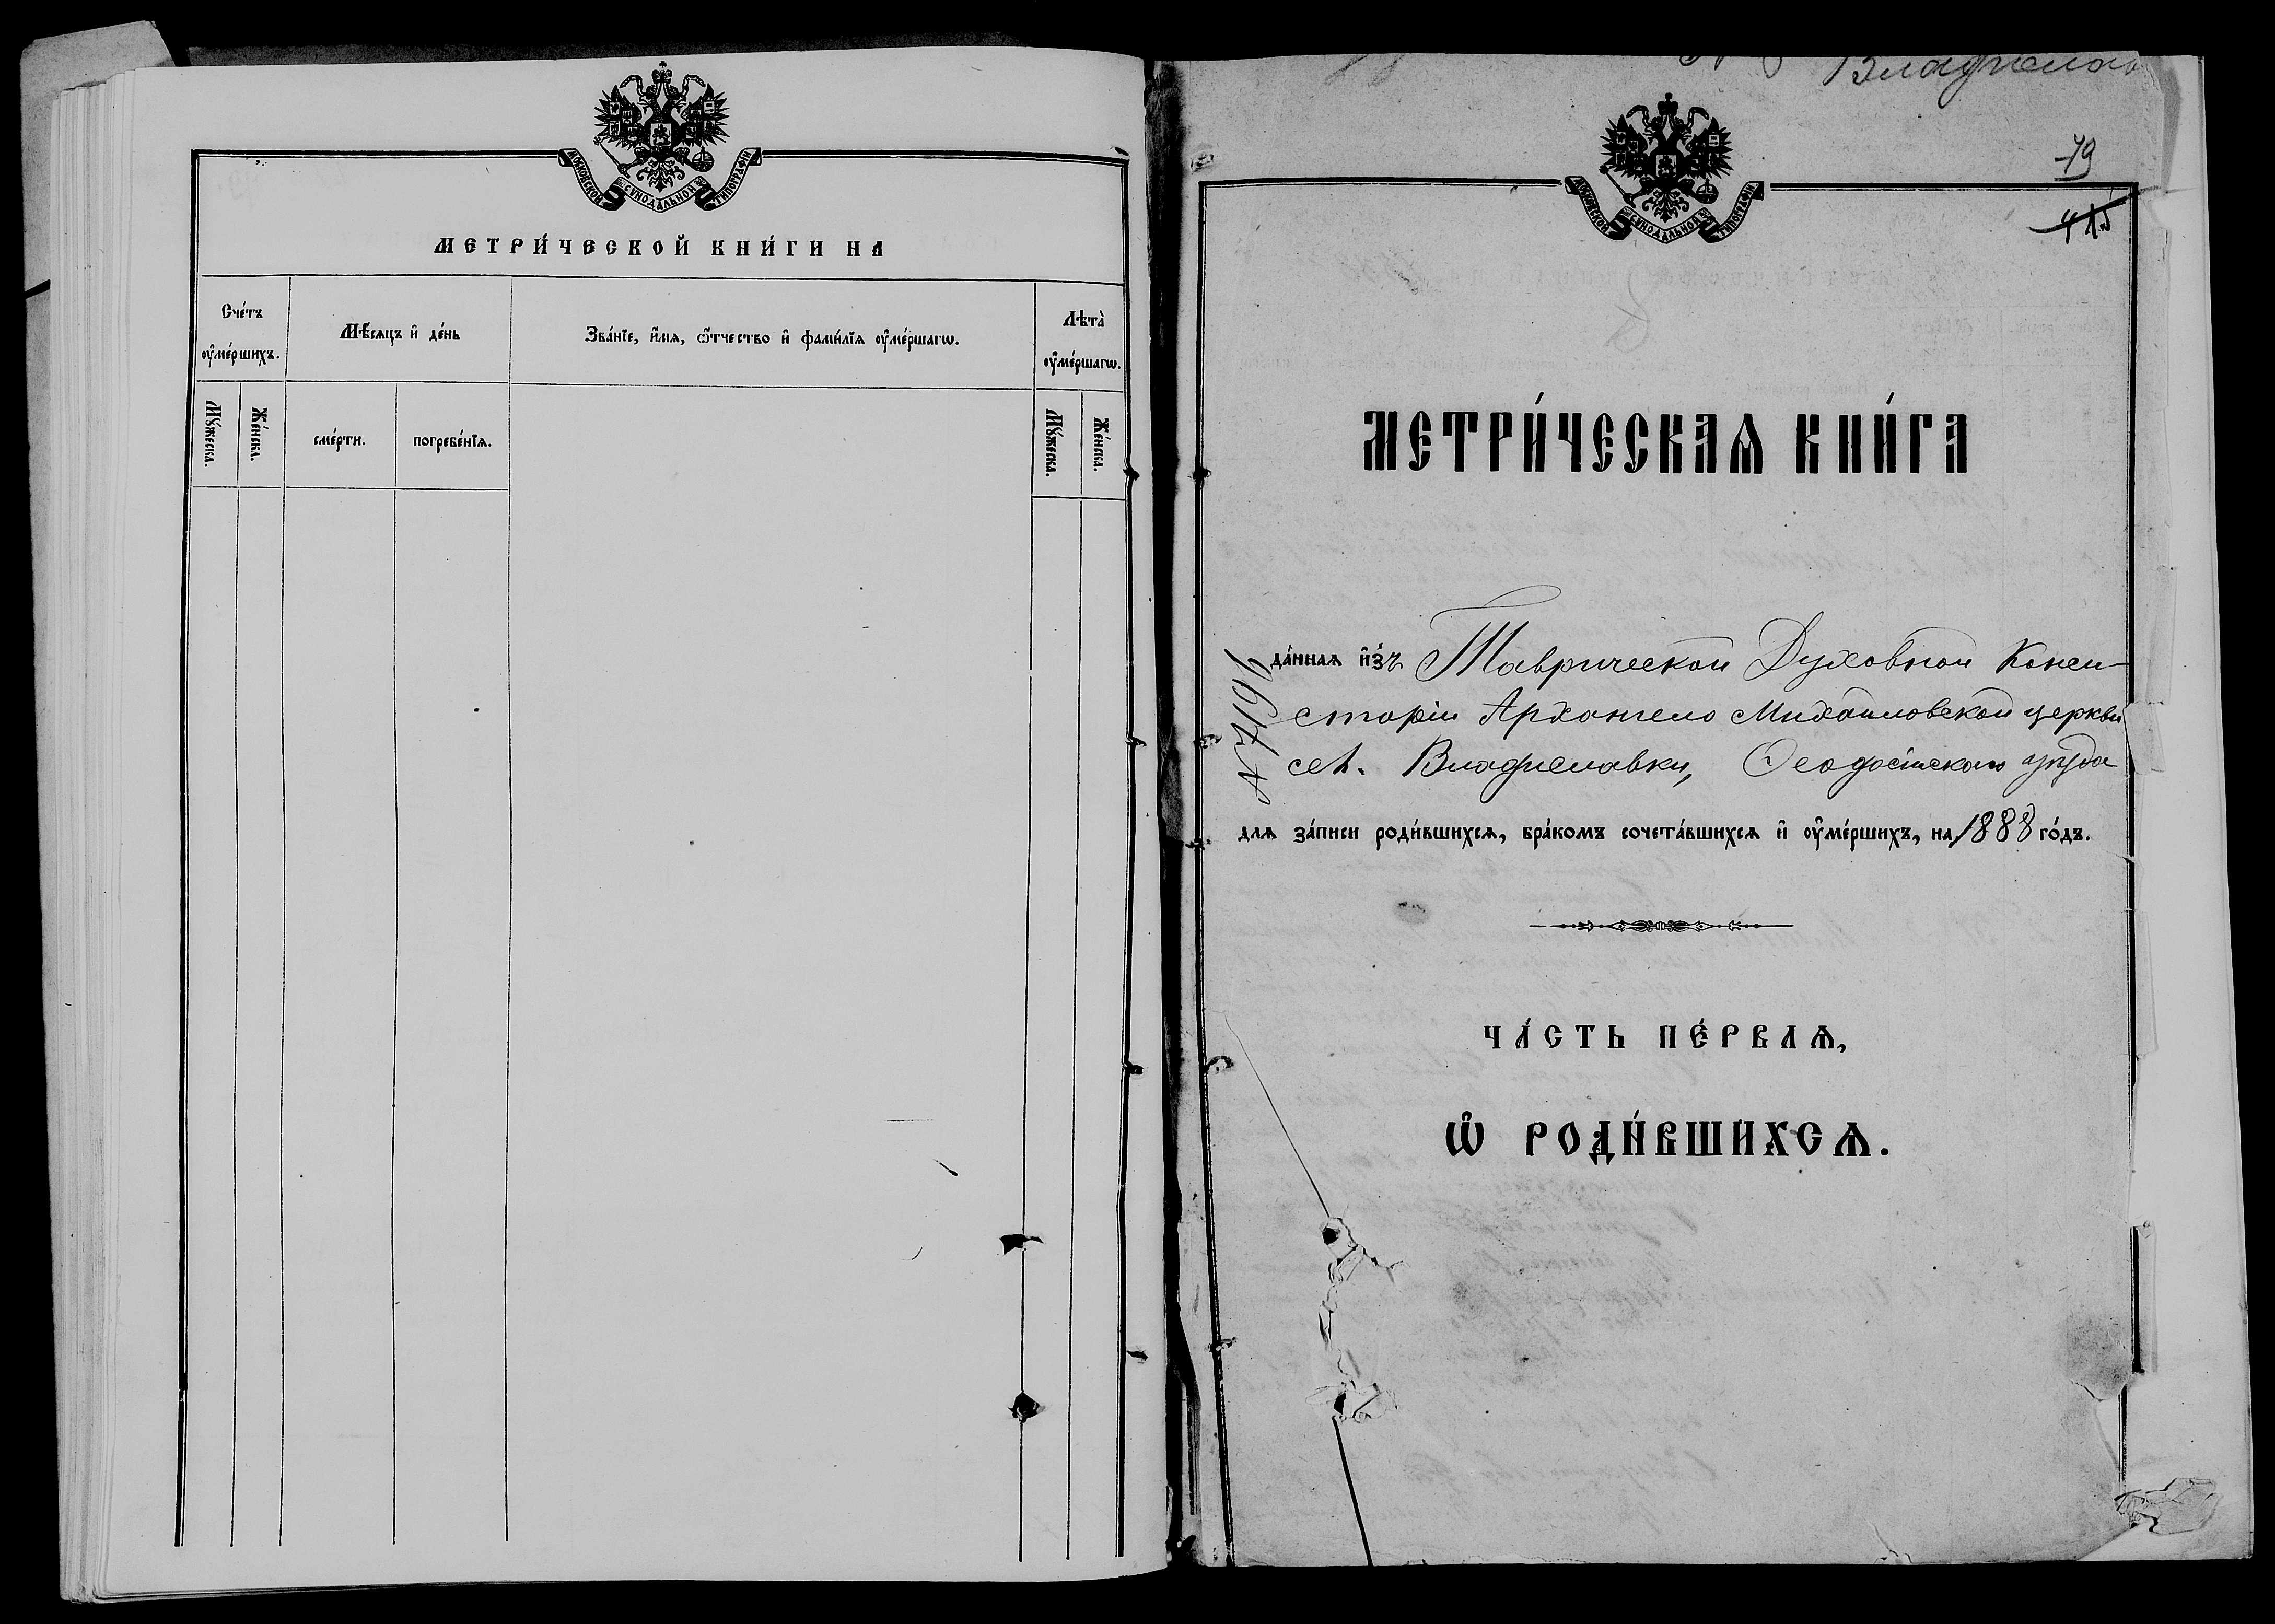 МОСКОВСКОЙ СѴНОДАЛЬНОЙ ТИПОГРАФІИ
МЕТРИ́ЧЕСКОЙ КНИ́ГИ НА
Сче́тъ ᲂу҆ме́ршихъ.
Мѣ́сяцъ и҆ де́нь
Зва́нїе, и҆́мѧ, ѻ҆́тчество и҆ фами́лїѧ ᲂу҆ме́ршагѡ.
Лѣта̀ ᲂу҆ме́ршагѡ.
Мꙋ́жеска.
Же́нска.
сме́рти.
погребе́нїѧ.
Мꙋ́жеска.
Же́нска.
79
МОСКОВСКОЙ СѴНОДАЛЬНОЙ ТИПОГРАФІИ
МЕТРИ́ЧЕСКАѦ КНИ́ГА
да́ннаѧ и҆з̾ Таврической Духовной Конси-
сторіи Архангело Михаиловской церкви
сел. Владиславки, Ѳеодосійскаго уѣзда
длѧ за́писи роди́вшихсѧ, бра́комъ сочета́вшихсѧ и҆ ᲂу҆ме́ршихъ, на 1888 го́дъ.
№ 7196
ЧА́СТЬ ПЕ́РВАѦ,
Ѡ҆ РОДИ́ВШИХСѦ.